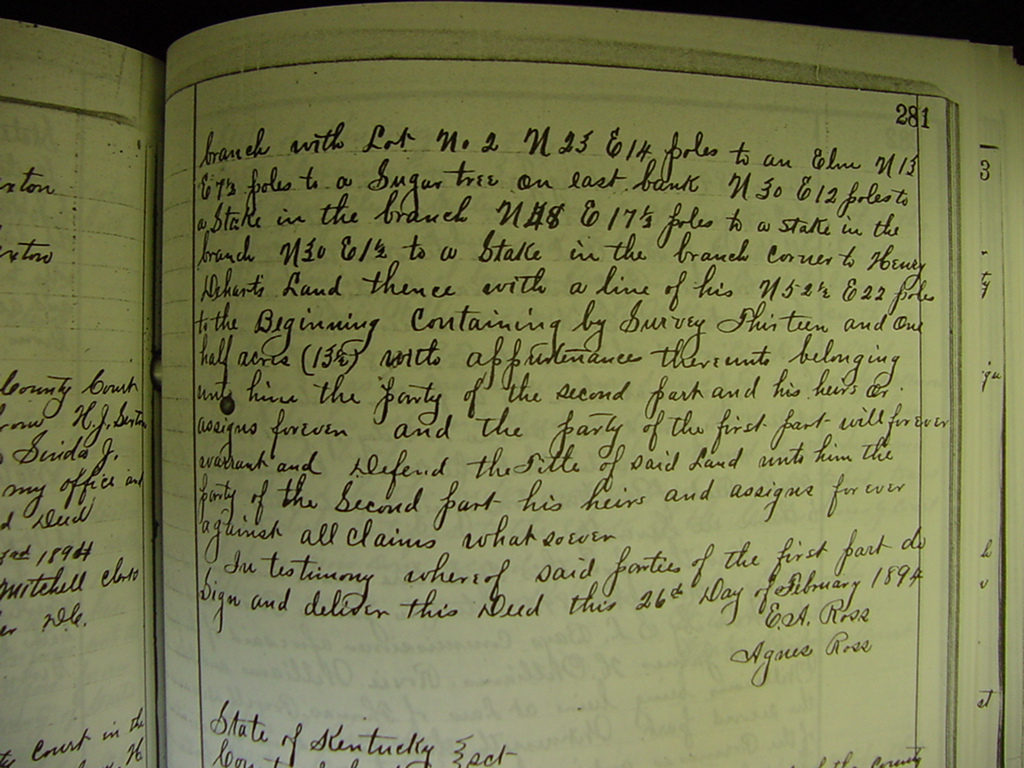 281
branch with Lot No 2 N 23 E 14 poles to an Elm N 13
E 7½ poles to a Sugar tree on east bank N 30 E 12 poles to
a Stake in the branch N 48 E 17½ poles to a stake in the
branch N 30 E 1½ to a Stake in the branch corner to Henry
Deharts Land thence with a line of his N 52½ E 22 poles
to the Beginning Containing by Survey Thirteen and One
half acres (13½) with appurtenances thereunto belonging
unto him the party of the second part and his heirs Or
assigns forever and the party of the first part will forever
warrant and Defend the Title of said Land unto him the
party of the Second part his heirs and assigns forever
against all Claims whatsoever
In testimony whereof said parties of the first part do
Sign and deliver this Deed this 26th Day of February 1894
E.A. Ross
Agnes Ross
State of Kentucky } sct
County Court
H.J. Sexton
Sinda J.
my office and
Deed
1894
Mitchell Clerk
D.C.
Court in the
3
the County